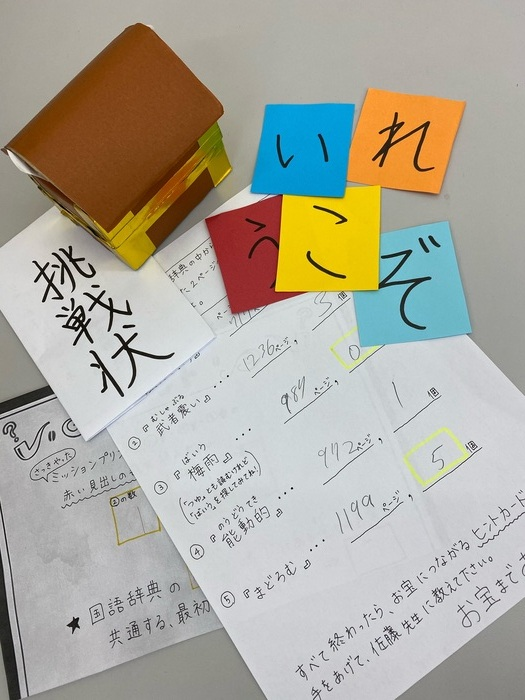 い
れ
う
こ
ぞ
挑戦状
辞典の中から
た2ページ
個
② 『武者震い』・・・・ 1236ページ, 0
むしゃぶる
③ 『梅雨』・・・・ 989ページ, 1個
ばいう
(「つゆ」とも読むけれど
「ばいう」を探してみてね!)
④ 『能動的』・・・・ 972ページ, 5個
のうどうてき
⑤ 『まどろむ』・・・ 1199ページ,
すべて終わったら、お宝につながるヒントカード
手をあげて、佐藤先生に教えてください。
お宝まで
さっきやった
ミッションプリン
赤い見出しの
②の数
1
★ 国語辞典の
共通する、最初